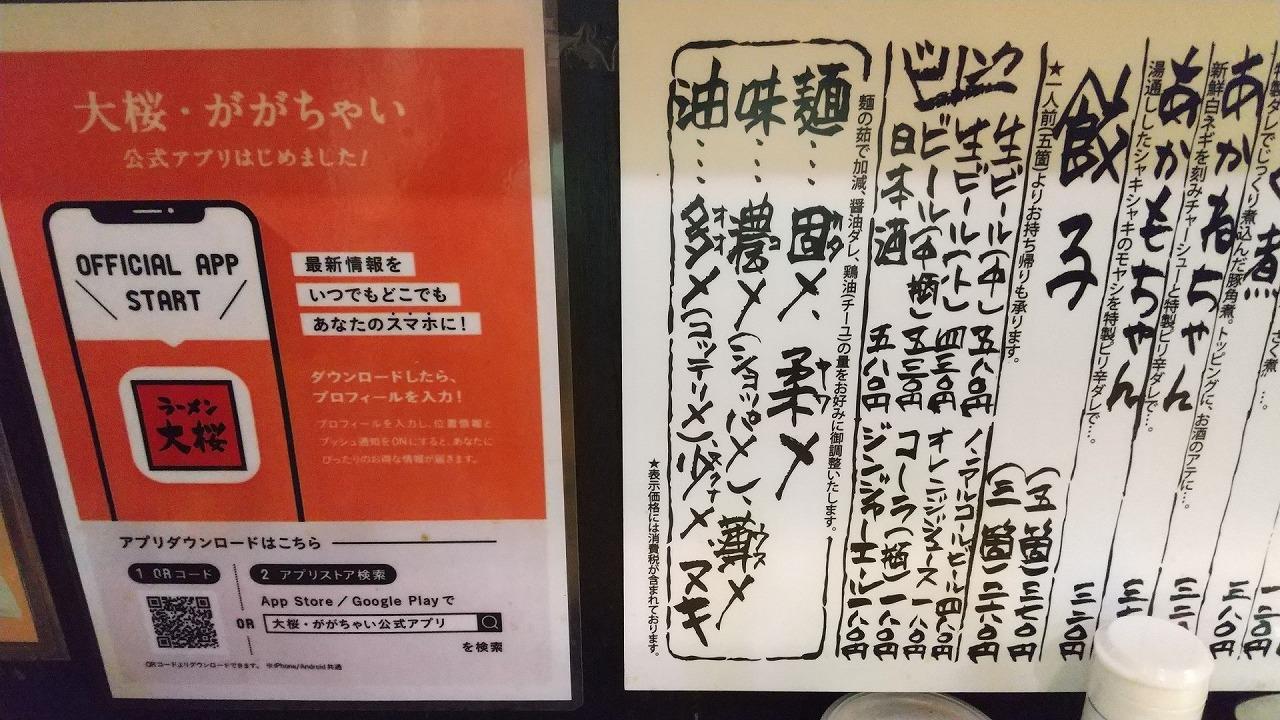 大桜・ががちゃい
公式アプリはじめました!
OFFICIAL APP
START
最新情報を
いつでもどこでも
あなたのスマホに!
ラーメン
大桜
ダウンロードしたら、
プロフィールを入力!
プロフィールを入力し、位置情報と
プッシュ通知をONにすると、あなたに
ぴったりのお得な情報が届きます。
アプリダウンロードはこちら
1 QRコード
OR
2 アプリストア検索
App Store / Google Playで
大桜・ががちゃい公式アプリ
を検索
QRコードよりダウンロードできます。 ※iPhone/Android 共通
製ダレでじっくり煮込んだ豚角煮。トッピングに、お酒のアテに…。
あか葱ちゃん
新鮮白ネギを刻みチャーシューと特製ピリ辛ダレで…。
あかもちゃん
湯通ししたシャキシャキのモヤシを特製ピリ辛ダレで…。
餃子
(五箇)三七〇円
(三箇)二六〇円
★一人前(五箇)よりお持ち帰りも承ります。
ドリンク
生ビール(中)五八〇円
生ビール(小)四三〇円
ビール(中瓶)五三〇円
日本酒 五八〇円
ノンアルコールビール 四一〇円
オレンジジュース 一八〇円
コーラ(瓶)一八〇円
ジンジャーエール 一八〇円
麺の茹で加減、醤油ダレ、鶏油(チーユ)の量をお好みに御調整いたします。
麺…固メ、柔メ
味…濃メ(ショッパメ)、薄メ
油…多メ(コッテリメ)少メ ヌキ
★表示価格には消費税が含まれております。